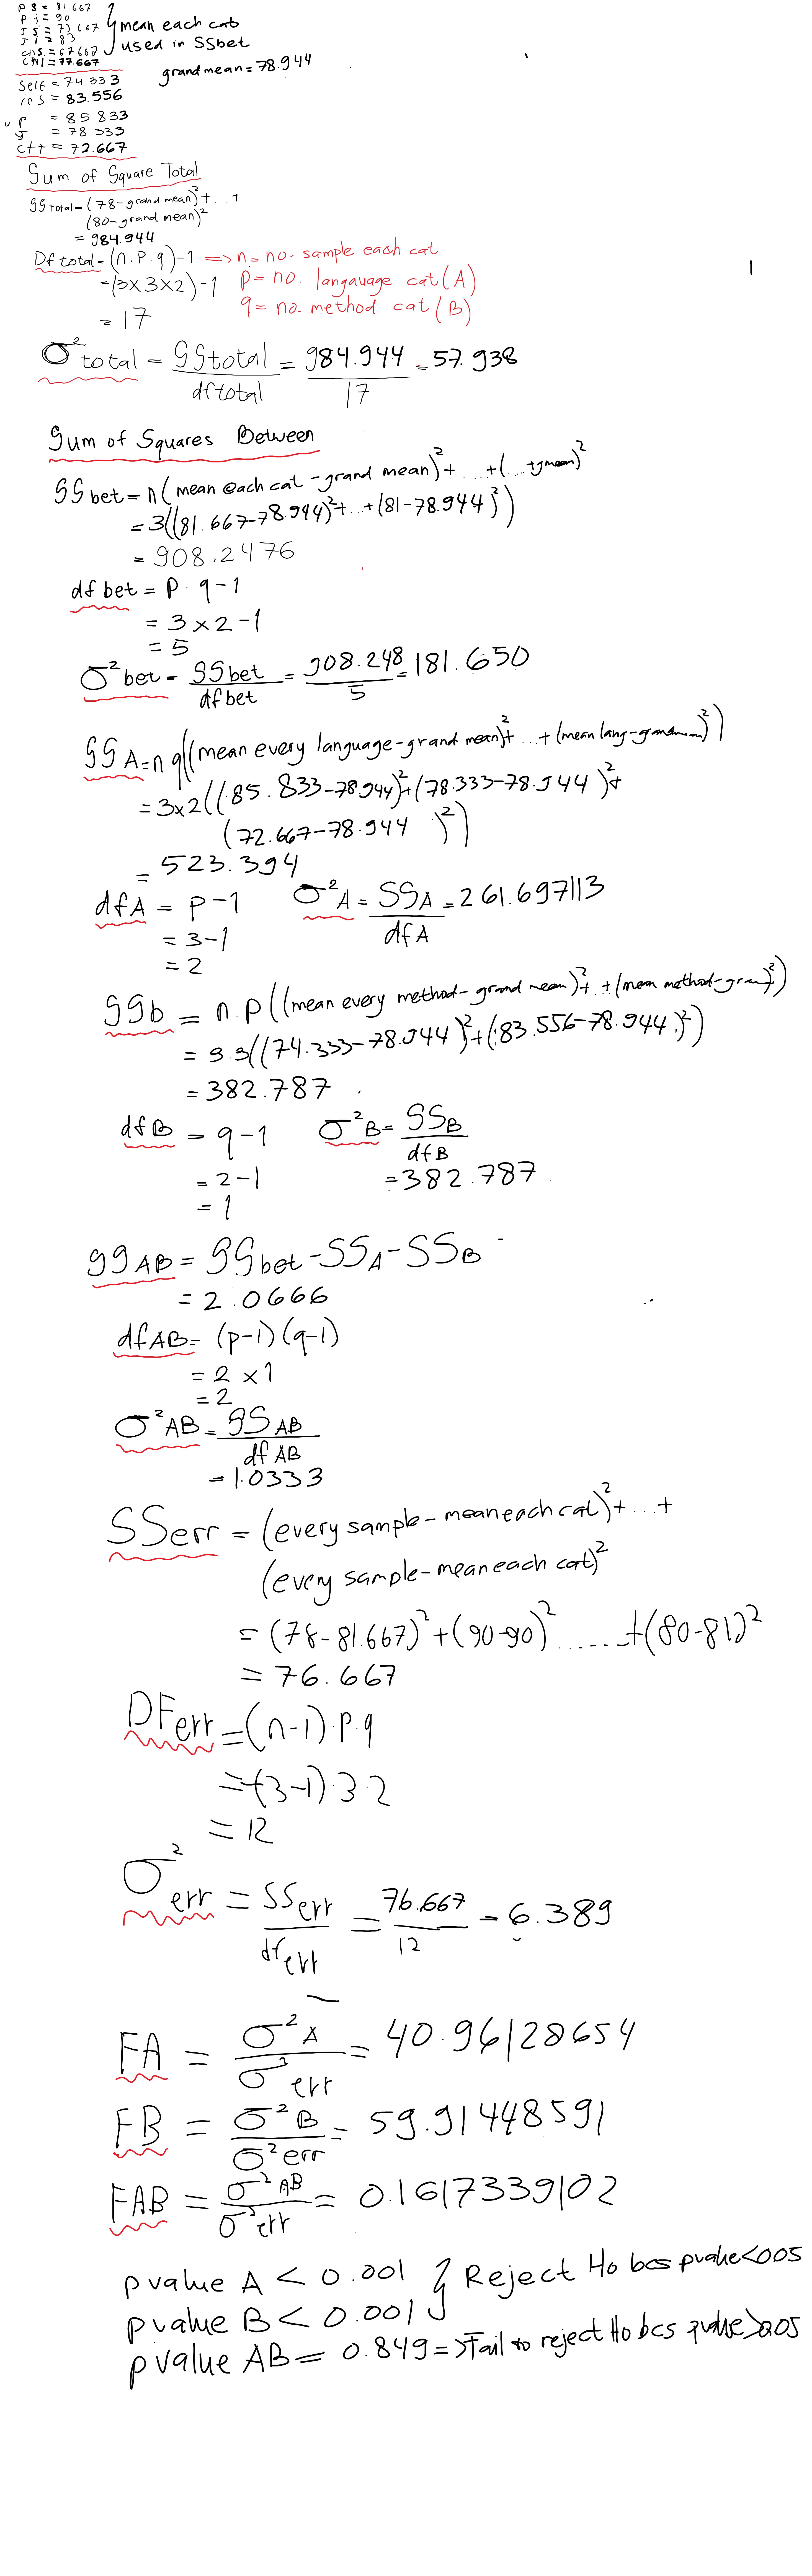 P S = 81.667
P i = 90
J S = 73.667
J i = 83
C++S = 67.667
C++i = 77.667
} mean each cat
used in SSbet
grand mean = 78.944
Self = 74.333
ins = 83.556
P = 85.833
J = 78.333
C++ = 72.667
Sum of Square Total
SS total = (78 - grand mean)² + ... +
(80 - grand mean)²
= 984.944
Df total = (n.p.q) - 1 => n = no. sample each cat
= (3 x 3 x 2) - 1 p = no. langauage cat (A)
= 17 q = no. method cat (B)
σ² total = SS total / df total = 984.944 / 17 = 57.938
Sum of Squares Between
SS bet = n (mean each cat - grand mean)² + ... + (... + gmean)²
= 3((81.667 - 78.944)² + ... + (81 - 78.944)²)
= 908.2476
df bet = p . q - 1
= 3 x 2 - 1
= 5
σ² bet = SS bet / df bet = 908.248 / 5 = 181.650
SS A = n q ((mean every language - grand mean)² + ... + (mean lang - grandmean)²)
= 3x2((85.833 - 78.944)² + (78.333 - 78.944)² +
(72.667 - 78.944)²)
= 523.394
df A = p - 1 σ² A = SS A / df A = 261.697113
= 3 - 1
= 2
SS b = n.p ((mean every method - grand mean)² + .. + (mean method - gran)²)
= 3.3((74.333 - 78.944)² + (83.556 - 78.944)²)
= 382.787
df B = q - 1 σ² B = SS B / df B
= 2 - 1 = 382.787
= 1
SS AB = SS bet - SS A - SS B
= 2.0666
df AB = (p-1)(q-1)
= 2 x 1
= 2
σ² AB = SS AB / df AB
= 1.0333
SS err = (every sample - mean each cat)² + ... +
(every sample - mean each cat)²
= (78 - 81.667)² + (90 - 90)² ...... + (80 - 81)²
= 76.667
DF err = (n-1).p.q
= (3-1).3.2
= 12
σ² err = SS err / df err = 76.667 / 12 = 6.389
FA = σ² A / σ² err = 40.96128654
FB = σ² B / σ² err = 59.91448591
FAB = σ² AB / σ² err = 0.1617339102
p value A < 0.001 } Reject Ho bcs pvalue < 0.05
p value B < 0.001
p value AB = 0.849 => Fail to reject Ho bcs pvalue > 0.05